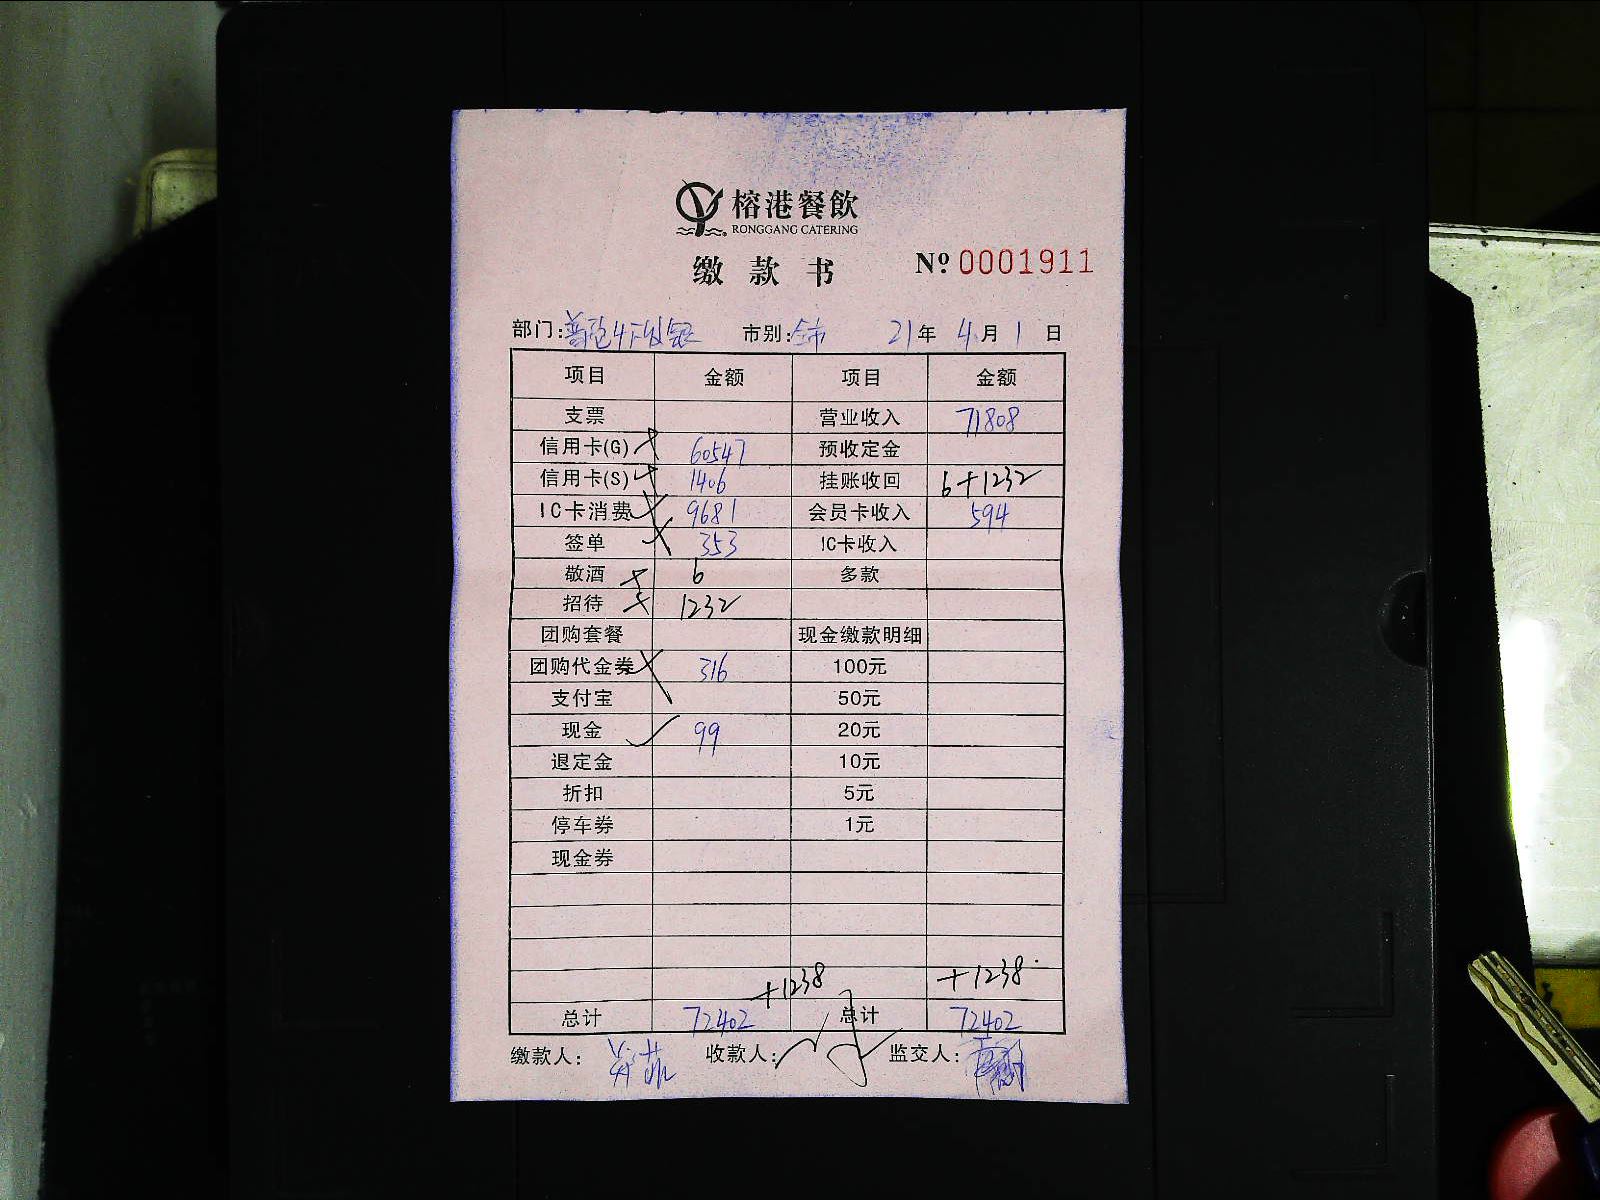 榕港餐飲
RONGGANG CATERING
缴款书 Nº 0001911
部门: 市别:全市 21年 4月 1日
项目 金额 项目 金额
支票 营业收入 71808
信用卡(G) 60547 预收定金
信用卡(S) 1406 挂账收回 6+1232
IC卡消费 9681 会员卡收入 594
签单 353 IC卡收入
敬酒 6 多款
招待 1232
团购套餐 现金缴款明细
团购代金券 316 100元
支付宝 50元
现金 99 20元
退定金 10元
折扣 5元
停车券 1元
现金券
+1238 +1238
总计 72402 总计 72402
缴款人: 收款人: 监交人: